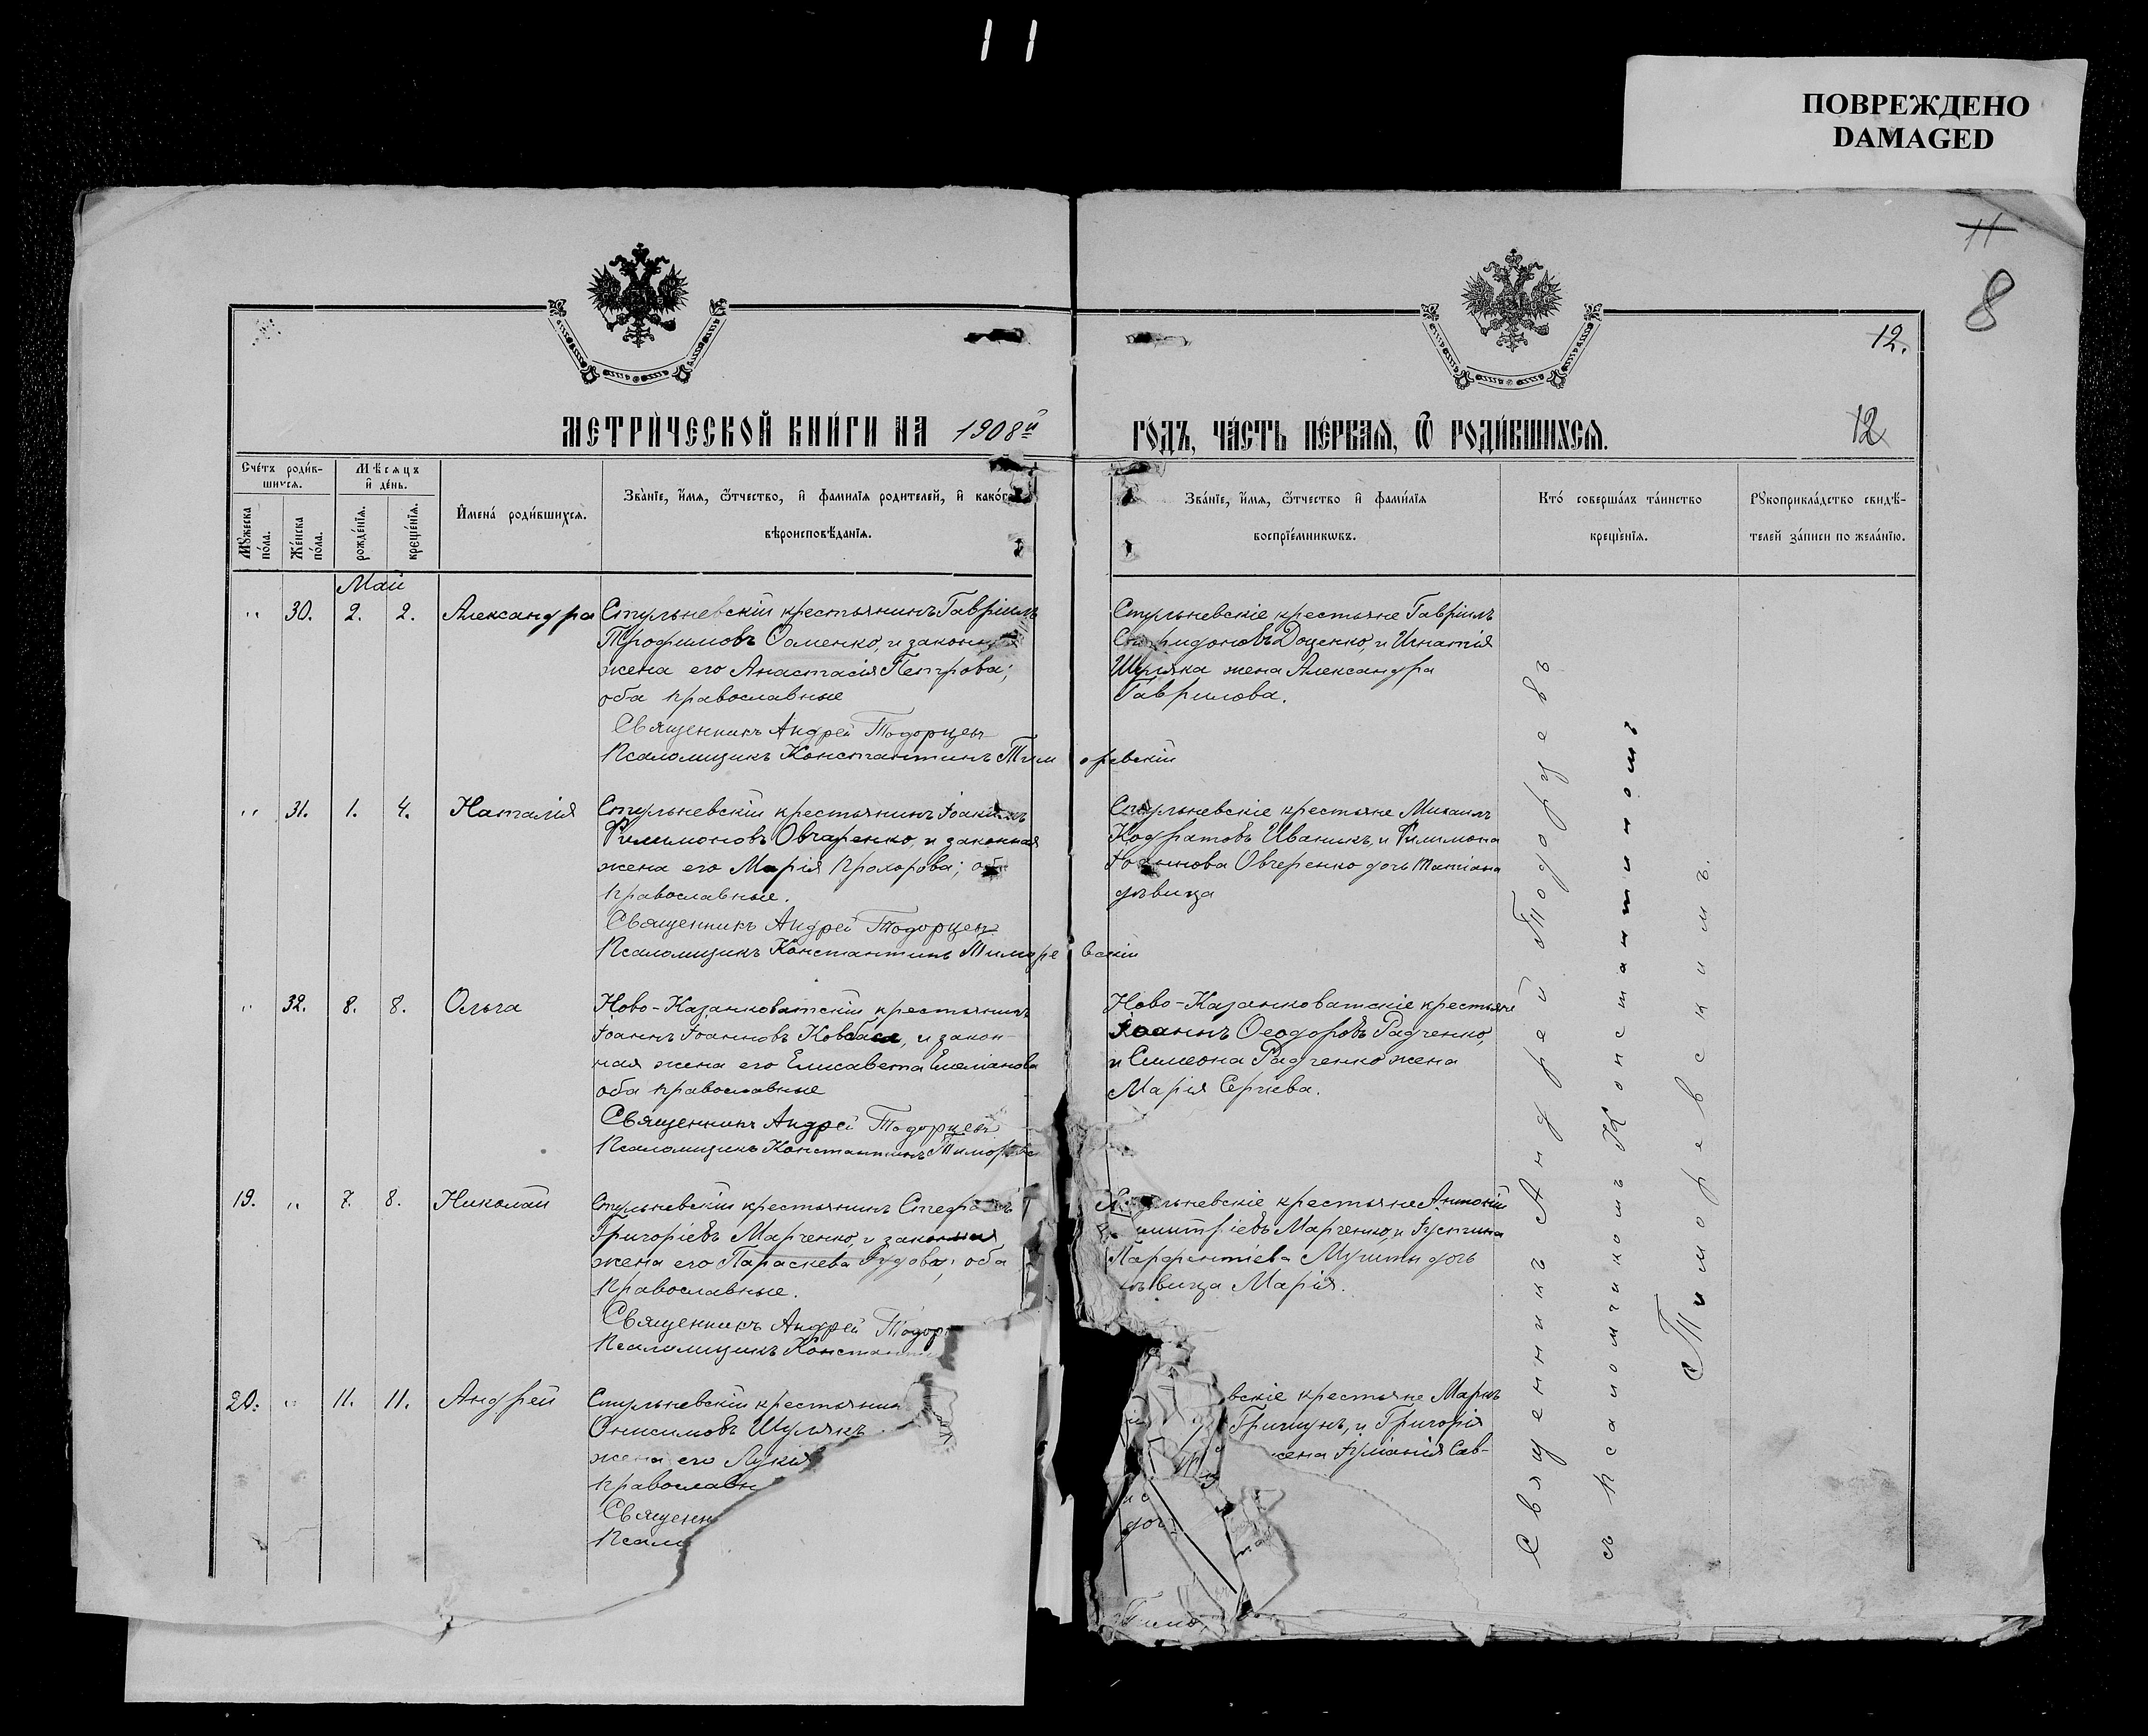 ПОВРЕЖДЕНО
DAMAGED
11
8
12.
12
МЕТРИ́ЧЕСКОЙ КНИ́ГИ НА 1908й
ГО́ДЪ, ЧА́СТЬ ПЕ́РВАѦ, Ѿ РОДИ́ВШИХСѦ.
Сче́тъ роди́в-
шихсѧ.
Мѣсѧцъ
и҆ де́нь.
Мꙋ́жеска
по́ла.
Же́нска
по́ла.
рожде́нїѧ.
креще́нїѧ.
И҆мена́ роди́вшихсѧ.
Зва́нїе, и҆́мѧ, ѻ҆́тчество, и҆ фами́лїѧ родителей, и҆ како́г
вѣроисповѣ́данїѧ.
Зва́нїе, и҆́мѧ, ѻ҆́тчество и҆ фами́лїѧ
воспрїе́мникѡвъ.
Кто̀ соверша́лъ та́инство
креще́нїѧ.
Рꙋкоприкла́дство свидѣ́-
телей за́писи по жела́нїю.
Май
" 30. 2. 2. Александра
Стульневскій крестьянинъ Гавріилъ
Трофимовъ Саменко, и законная
жена его Анастасія Петрова;
оба православные
Священникъ Андрей Тодорцевъ
Псаломщикъ Константинъ Тиморевскій
Стульневскіе крестьяне Гавріилъ
Спиридоновъ Доценко, и Игнатія
Шуляка жена Александра
Гаврилова.
" 31. 1. 4. Наталія
Стульневскій крестьянинъ Іоакимъ
Филимоновъ Овчаренко, и законная
жена его Марія Прохорова; оба
православные.
Священникъ Андрей Тодорцевъ
Псаломщикъ Константинъ Тиморевскій
Стульневскіе крестьяне Михаилъ
Кодратовъ Иваникъ, и Филимона
Овчеренко дочь Татіана
дѣвица
" 32. 8. 8. Ольга
Ново-Казанковатскій крестьянинъ
Іоаннъ Іоанновъ Ковбаса, и закон-
ная жена его Елисавета Емеліанова
оба православные
Священникъ Андрей Тодорцевъ
Псаломщикъ Константинъ Тиморевс
Ново-Казанковатскіе крестьяне
Іоаннъ Ѳеодоровъ Радченко,
и Симеона Радченко жена
Марія Сергіева.
19. " 7. 8. Николай
Стульневскій крестьянинъ Стефанъ
Григоріевъ Марченко, и законная
жена его Параскева Іудова; оба
православные.
Священникъ Андрей Тодор
Псаломщикъ Константи
Стульневскіе крестьяне Антоній
Димитріевъ Марченко, и Іустина
Парфентіева дочь
дѣвица Марія.
20. " 11. 11. Андрей
Стульневскій крестьянин
Онисимовъ Шулякъ
жена его Лукія
православн
Священн
Псал
вскіе крестьяне Маркъ
Гричунъ, и Григорія
жена Іуліанія Сав-
доч
Тимо
Священникъ Андрей Тодорцевъ
съ псаломщикомъ Константиномъ
Тиморевскимъ.